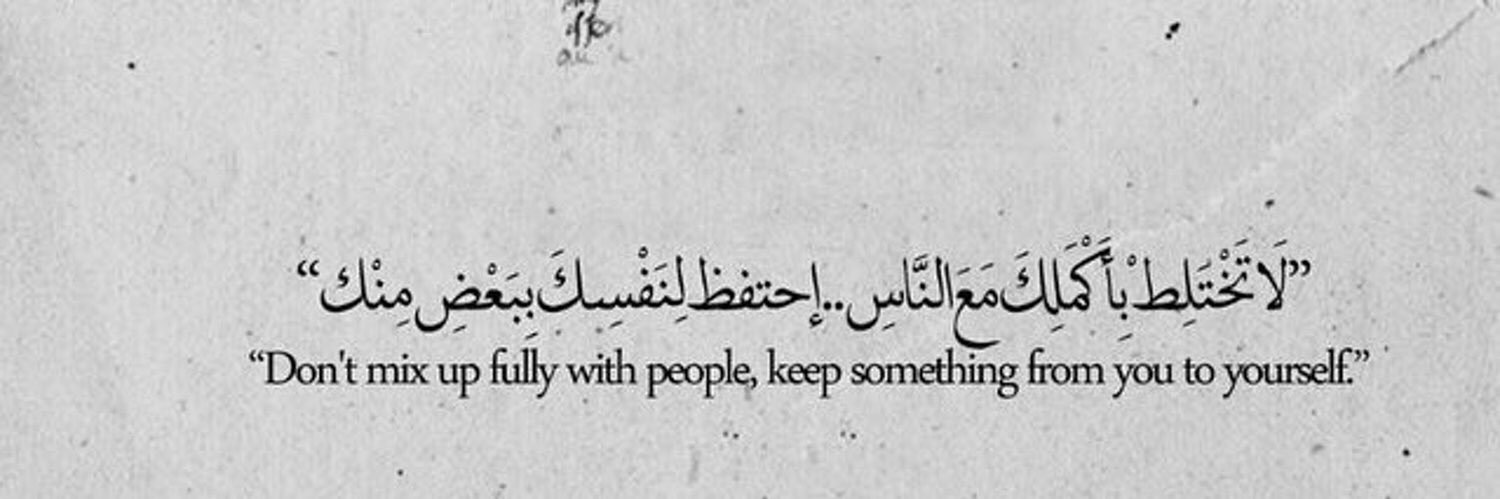 ”لَا تَخْتَلِطْ بِأَكْمَلِكَ مَعَ النَّاسِ..إحتفظ لِنَفْسِكَ بِبَعْضِ مِنْك“
“Don't mix up fully with people, keep something from you to yourself.”